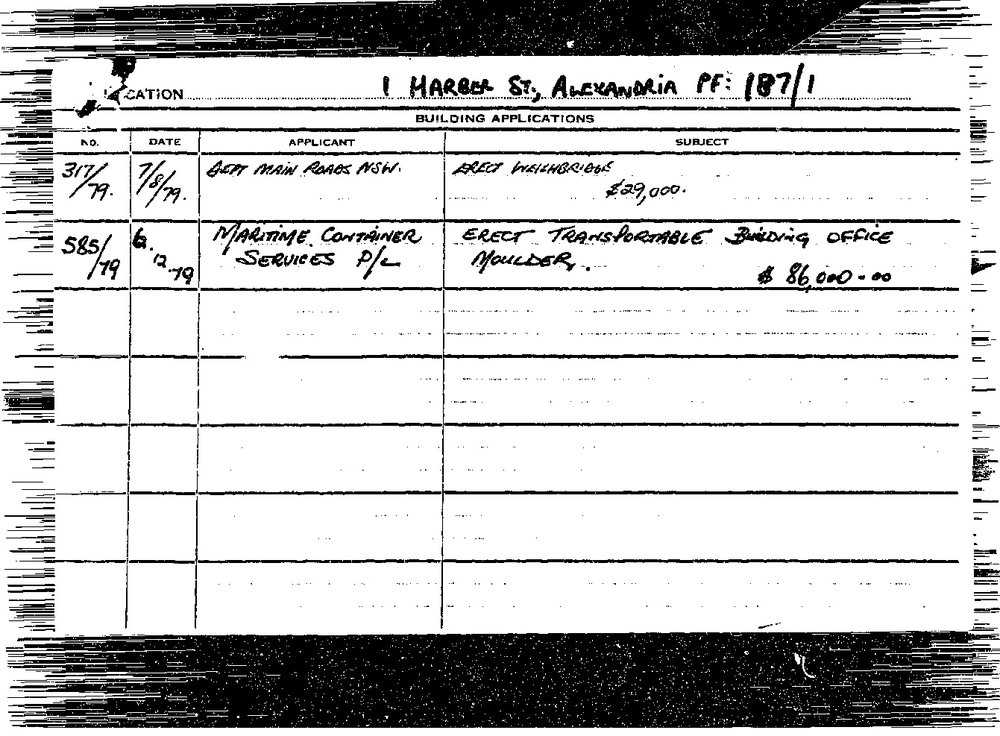 LOCATION 1 HARBER ST., ALEXANDRIA PF: 187/1
BUILDING APPLICATIONS
NO. DATE APPLICANT SUBJECT
317/79. 7/8/79. DEPT MAIN ROADS NSW. ERECT WEIGHBRIDGE
$29,000.
585/79 6.12.79 MARITIME CONTAINER ERECT TRANSPORTABLE BUILDING OFFICE
SERVICES P/L MOULDER,.
$ 86,000-00